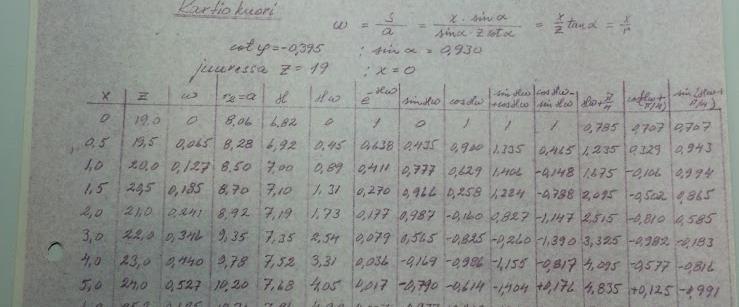 Kartiokuori
ω = s/a = x · sin α / sin α · z cot α = x/z tan α = x/r
cot φ = -0,395 ; sin α = 0,930
juuressa z = 19 ; x = 0
x z ω r₂=a ϰ ϰω e^-ϰω sin ϰω cos ϰω sin ϰω + cos ϰω cos ϰω - sin ϰω ϰω + π/4 cos(ϰω + π/4) sin(ϰω + π/4)
0 19,0 0 8,06 6,82 0 1 0 1 1 1 0,785 0,707 0,707
0,5 19,5 0,065 8,28 6,92 0,45 0,638 0,435 0,900 1,335 0,465 1,235 0,329 0,943
1,0 20,0 0,127 8,50 7,00 0,89 0,411 0,777 0,629 1,406 -0,148 1,675 -0,106 0,994
1,5 20,5 0,185 8,70 7,10 1,31 0,270 0,966 0,258 1,224 -0,788 2,095 -0,502 0,865
2,0 21,0 0,241 8,92 7,19 1,73 0,177 0,987 -0,160 0,827 -1,147 2,515 -0,810 0,585
3,0 22,0 0,346 9,35 7,35 2,54 0,079 0,565 -0,825 -0,260 -1,390 3,325 -0,982 -0,183
4,0 23,0 0,440 9,78 7,52 3,31 0,036 -0,169 -0,986 -1,155 -0,817 4,095 -0,577 -0,816
5,0 24,0 0,527 10,20 7,68 4,05 0,017 -0,790 -0,614 -1,404 +0,176 4,835 +0,125 -0,991